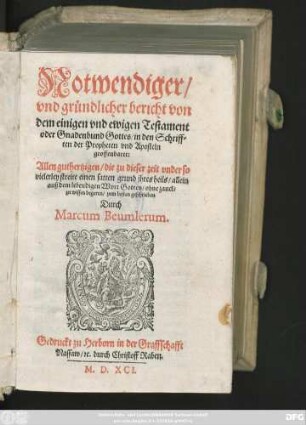 Notwendiger/
vnd gründlicher bericht von
dem einigen vnd ewigen Testament
oder Gnadenbund Gottes/ in den Schriff-
ten der Propheten vnd Aposteln
geoffenbaret:
Allen guthertzigen/ die zu dieser zeit vnder so
vielerley streite einen satten grund ihres heils/ allein
auß dem lebendigen Wort Gottes/ ohne zanck/
zu wissen begeren/ zum besten geschrieben
Durch
Marcum Beumlerum.
Gedruckt zu Herborn in der Graffschafft
Nassaw/ ꝛc. durch Christoff Raben.
M. D. XCI.